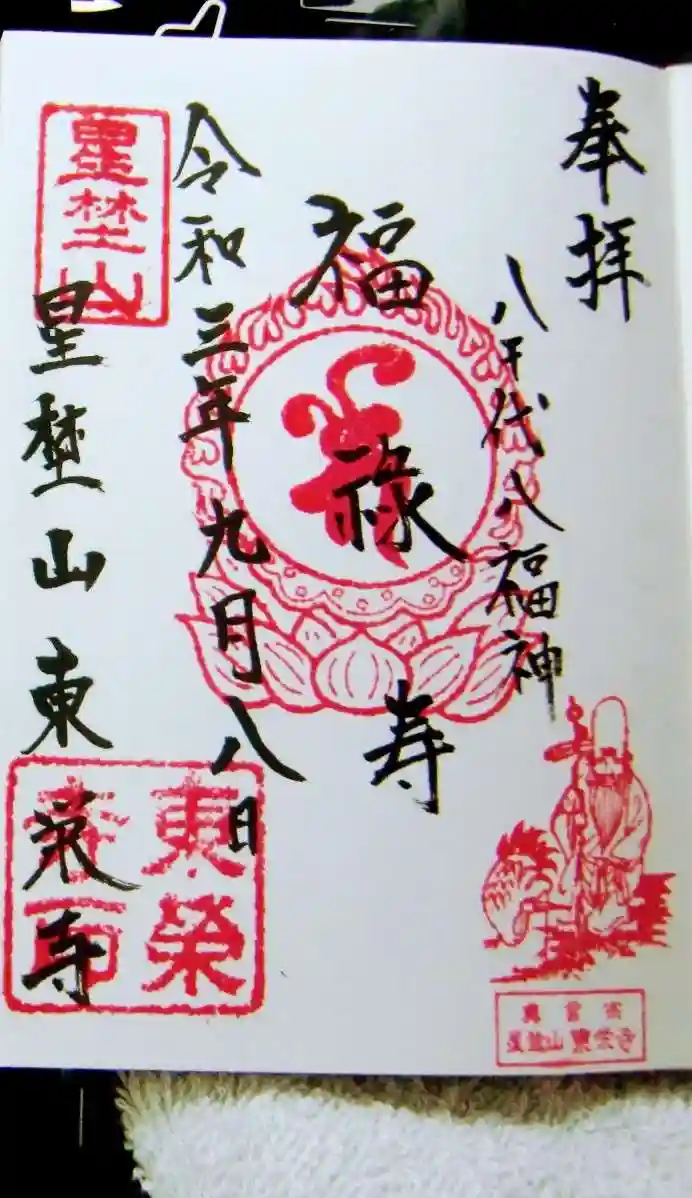 奉拝
八千代八福神
福禄寿
令和三年九月八日
星埜山東栄寺
星埜山
東榮寺印
真言宗
星埜山東栄寺